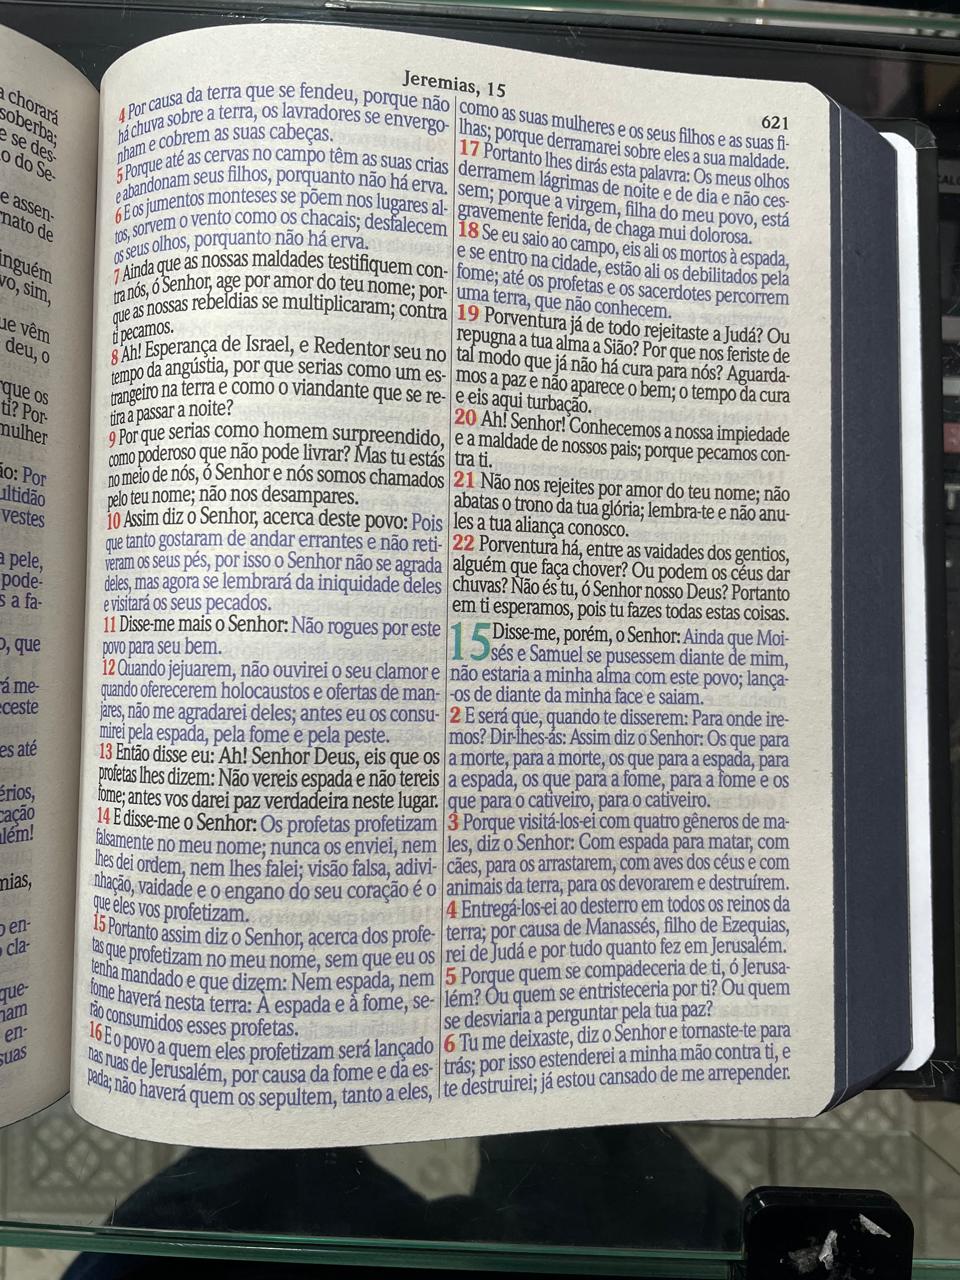 a chorará
soberba;
e se des-
o do Se-
e assen-
nato de
inguém
vo, sim,
ue vêm
deu, o
rque os
ti? Por-
mulher
ão: Por
ultidão
vestes
a pele,
pode-
s a fa-
o, que
rá me-
ceste
es até
érios,
cação
além!
mias,
o en-
cla-
que-
nam
en-
suas
Jeremias, 15
621
4 Por causa da terra que se fendeu, porque não
há chuva sobre a terra, os lavradores se envergo-
nham e cobrem as suas cabeças.
5 Porque até as cervas no campo têm as suas crias
e abandonam seus filhos, porquanto não há erva.
6 E os jumentos monteses se põem nos lugares al-
tos, sorvem o vento como os chacais; desfalecem
os seus olhos, porquanto não há erva.
7 Ainda que as nossas maldades testifiquem con-
tra nós, ó Senhor, age por amor do teu nome; por-
que as nossas rebeldias se multiplicaram; contra
ti pecamos.
8 Ah! Esperança de Israel, e Redentor seu no
tempo da angústia, por que serias como um es-
trangeiro na terra e como o viandante que se re-
tira a passar a noite?
9 Por que serias como homem surpreendido,
como poderoso que não pode livrar? Mas tu estás
no meio de nós, ó Senhor e nós somos chamados
pelo teu nome; não nos desampares.
10 Assim diz o Senhor, acerca deste povo: Pois
que tanto gostaram de andar errantes e não reti-
veram os seus pés, por isso o Senhor não se agrada
deles, mas agora se lembrará da iniquidade deles
e visitará os seus pecados.
11 Disse-me mais o Senhor: Não rogues por este
povo para seu bem.
12 Quando jejuarem, não ouvirei o seu clamor e
quando oferecerem holocaustos e ofertas de man-
jares, não me agradarei deles; antes eu os consu-
mirei pela espada, pela fome e pela peste.
13 Então disse eu: Ah! Senhor Deus, eis que os
profetas lhes dizem: Não vereis espada e não tereis
fome; antes vos darei paz verdadeira neste lugar.
14 E disse-me o Senhor: Os profetas profetizam
falsamente no meu nome; nunca os enviei, nem
lhes dei ordem, nem lhes falei; visão falsa, adivi-
nhação, vaidade e o engano do seu coração é o
que eles vos profetizam.
15 Portanto assim diz o Senhor, acerca dos profe-
tas que profetizam no meu nome, sem que eu os
tenha mandado e que dizem: Nem espada, nem
fome haverá nesta terra: À espada e à fome, se-
rão consumidos esses profetas.
16 E o povo a quem eles profetizam será lançado
nas ruas de Jerusalém, por causa da fome e da es-
pada; não haverá quem os sepultem, tanto a eles,
como as suas mulheres e os seus filhos e as suas fi-
lhas; porque derramarei sobre eles a sua maldade.
17 Portanto lhes dirás esta palavra: Os meus olhos
derramem lágrimas de noite e de dia e não ces-
sem; porque a virgem, filha do meu povo, está
gravemente ferida, de chaga mui dolorosa.
18 Se eu saio ao campo, eis ali os mortos à espada,
e se entro na cidade, estão ali os debilitados pela
fome; até os profetas e os sacerdotes percorrem
uma terra, que não conhecem.
19 Porventura já de todo rejeitaste a Judá? Ou
repugna a tua alma a Sião? Por que nos feriste de
tal modo que já não há cura para nós? Aguarda-
mos a paz e não aparece o bem; o tempo da cura
e eis aqui turbação.
20 Ah! Senhor! Conhecemos a nossa impiedade
e a maldade de nossos pais; porque pecamos con-
tra ti.
21 Não nos rejeites por amor do teu nome; não
abatas o trono da tua glória; lembra-te e não anu-
les a tua aliança conosco.
22 Porventura há, entre as vaidades dos gentios,
alguém que faça chover? Ou podem os céus dar
chuvas? Não és tu, ó Senhor nosso Deus? Portanto
em ti esperamos, pois tu fazes todas estas coisas.
15 Disse-me, porém, o Senhor: Ainda que Moi-
sés e Samuel se pusessem diante de mim,
não estaria a minha alma com este povo; lança-
-os de diante da minha face e saiam.
2 E será que, quando te disserem: Para onde ire-
mos? Dir-lhes-ás: Assim diz o Senhor: Os que para
a morte, para a morte, os que para a espada, para
a espada, os que para a fome, para a fome e os
que para o cativeiro, para o cativeiro.
3 Porque visitá-los-ei com quatro gêneros de ma-
les, diz o Senhor: Com espada para matar, com
cães, para os arrastarem, com aves dos céus e com
animais da terra, para os devorarem e destruírem.
4 Entregá-los-ei ao desterro em todos os reinos da
terra; por causa de Manassés, filho de Ezequias,
rei de Judá e por tudo quanto fez em Jerusalém.
5 Porque quem se compadeceria de ti, ó Jerusa-
lém? Ou quem se entristeceria por ti? Ou quem
se desviaria a perguntar pela tua paz?
6 Tu me deixaste, diz o Senhor e tornaste-te para
trás; por isso estenderei a minha mão contra ti, e
te destruirei; já estou cansado de me arrepender.